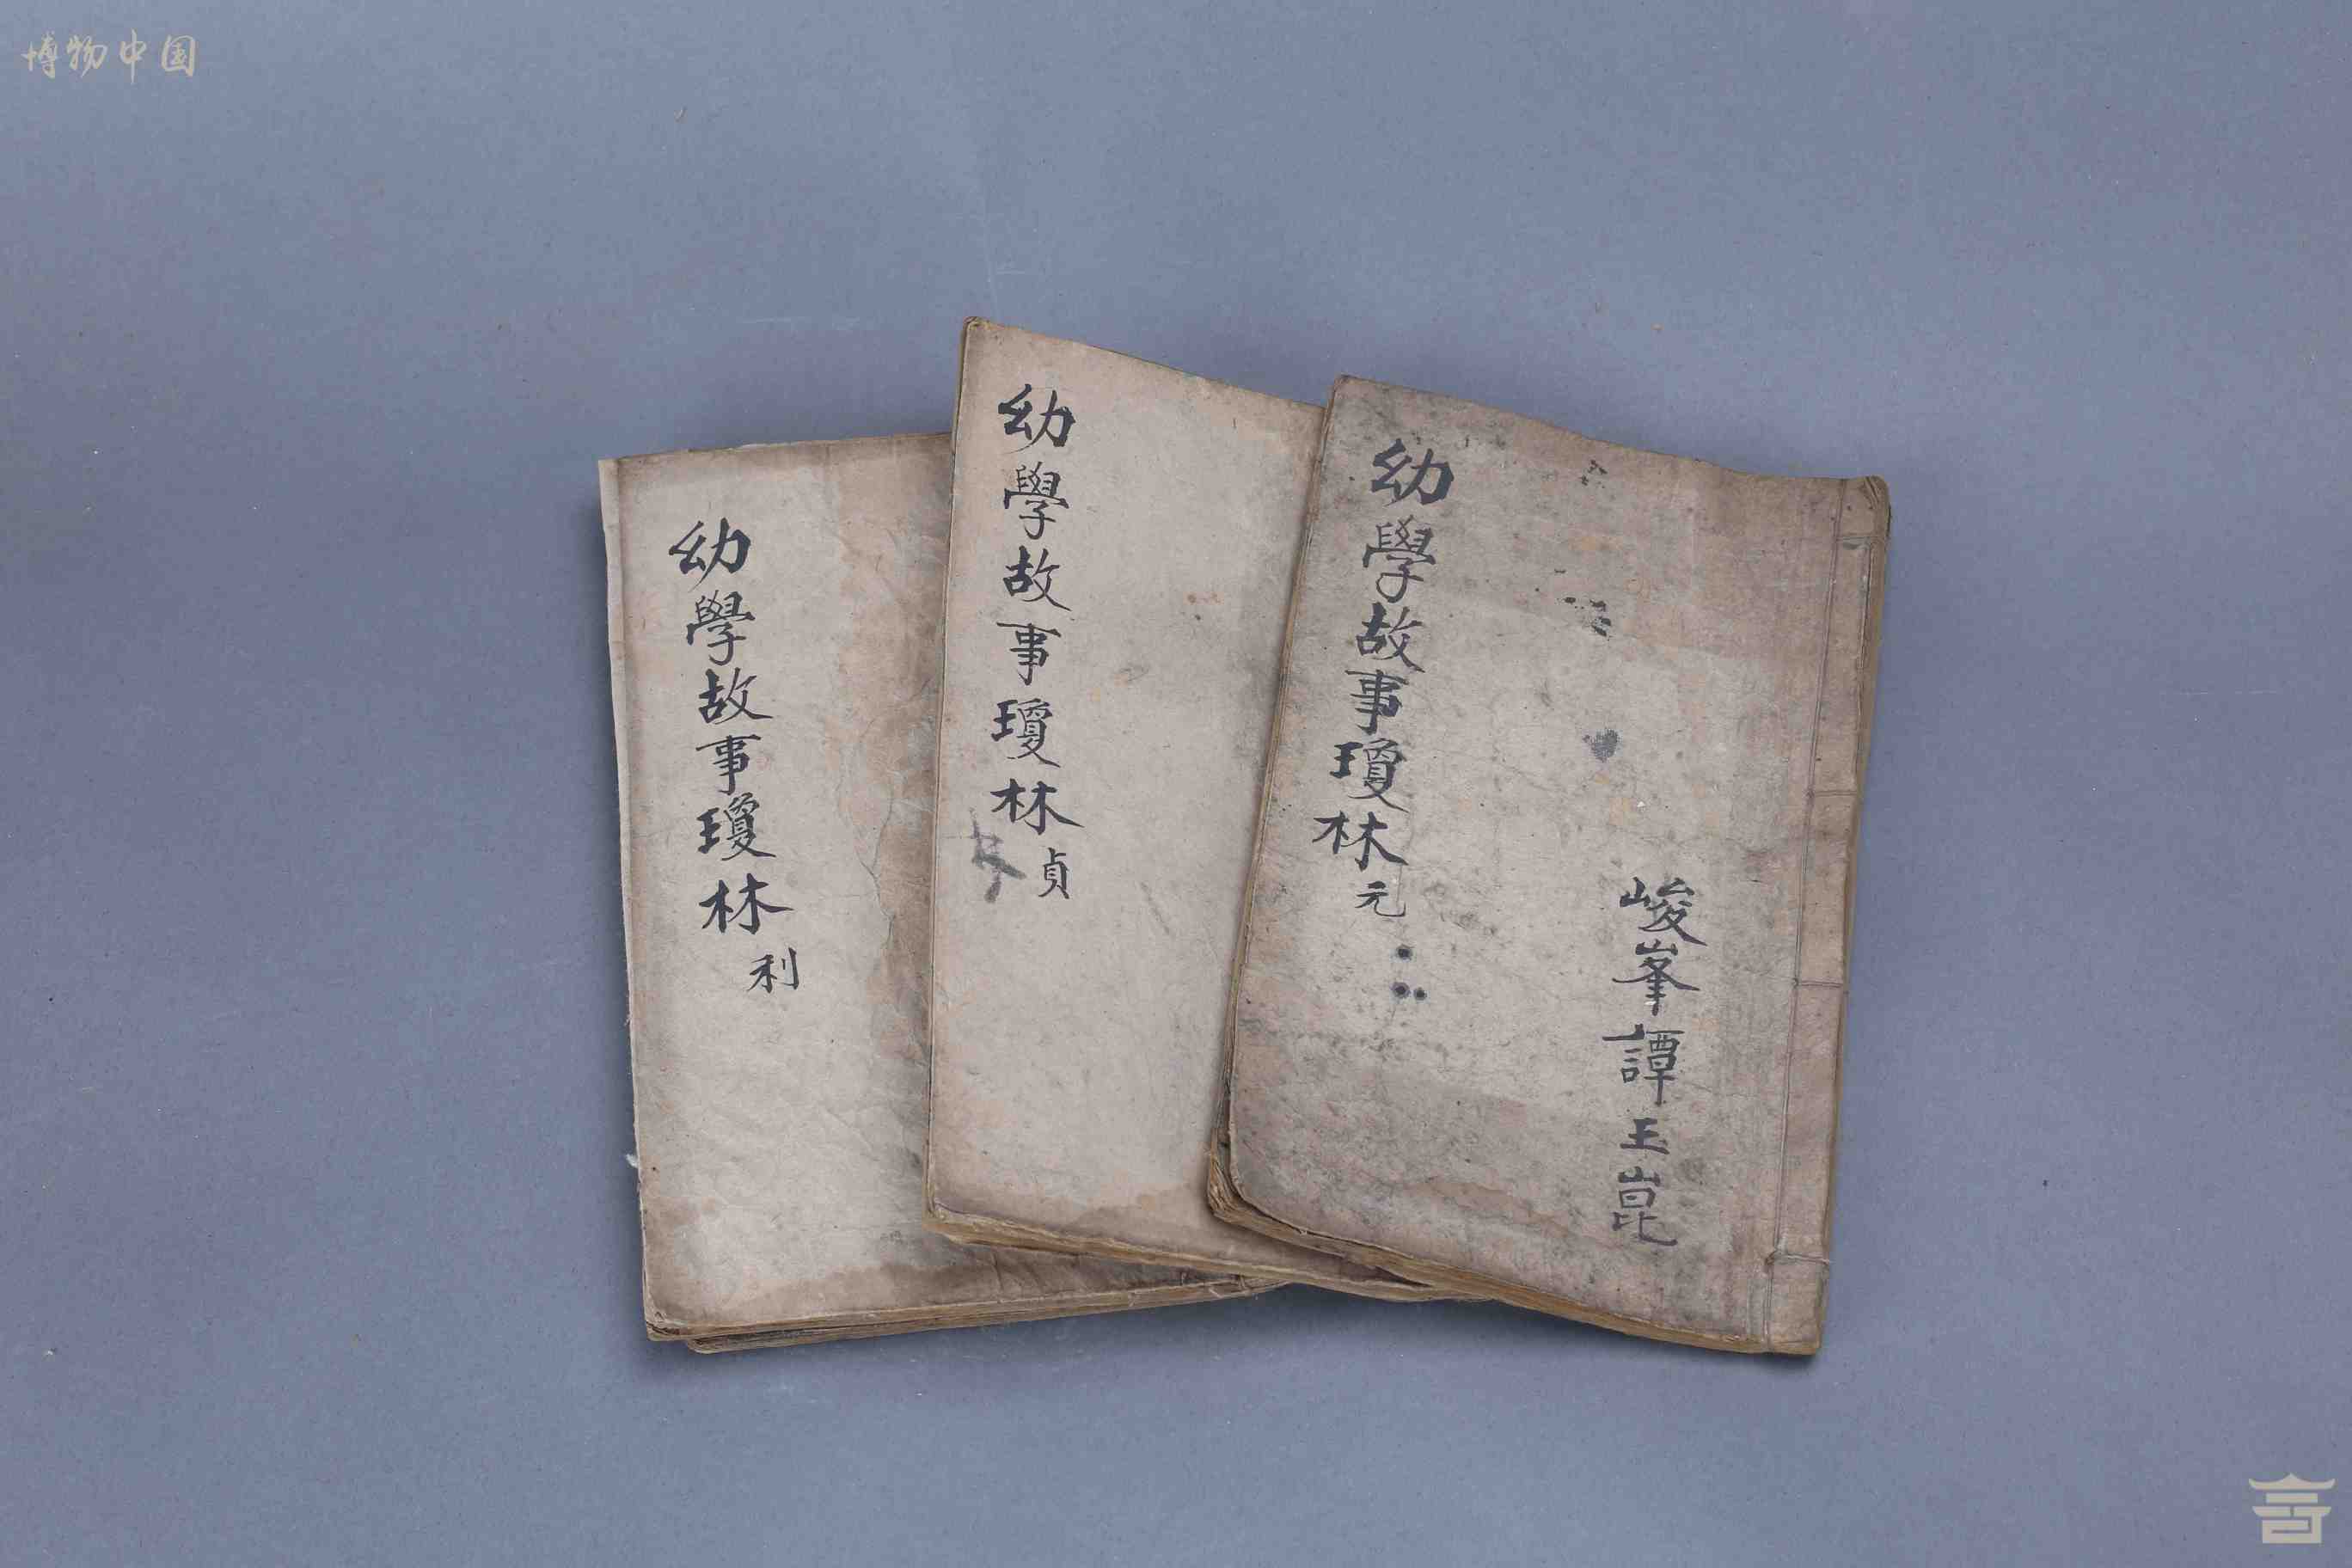 博物中国
幼學故事瓊林 利
幼學故事瓊林 貞
幼學故事瓊林 元
峻峯譚玉崑